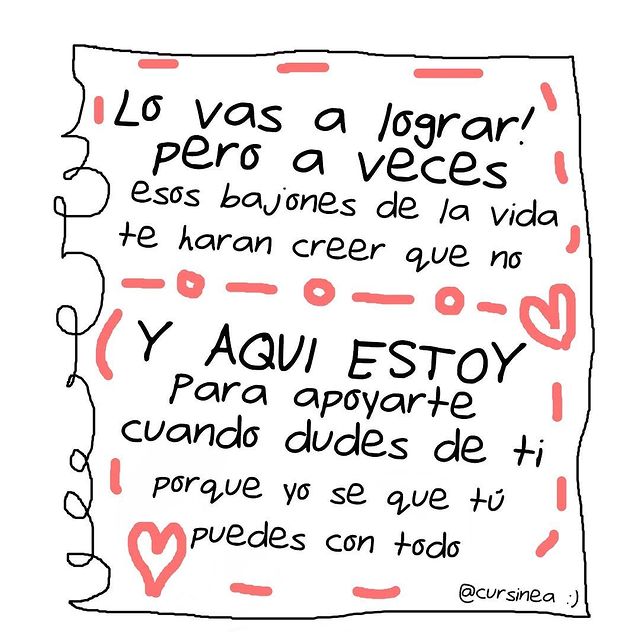 Lo vas a lograr!
pero a veces
esos bajones de la vida
te haran creer que no
Y AQUI ESTOY
para apoyarte
cuando dudes de ti
porque yo se que tú
puedes con todo
@cursinea :)